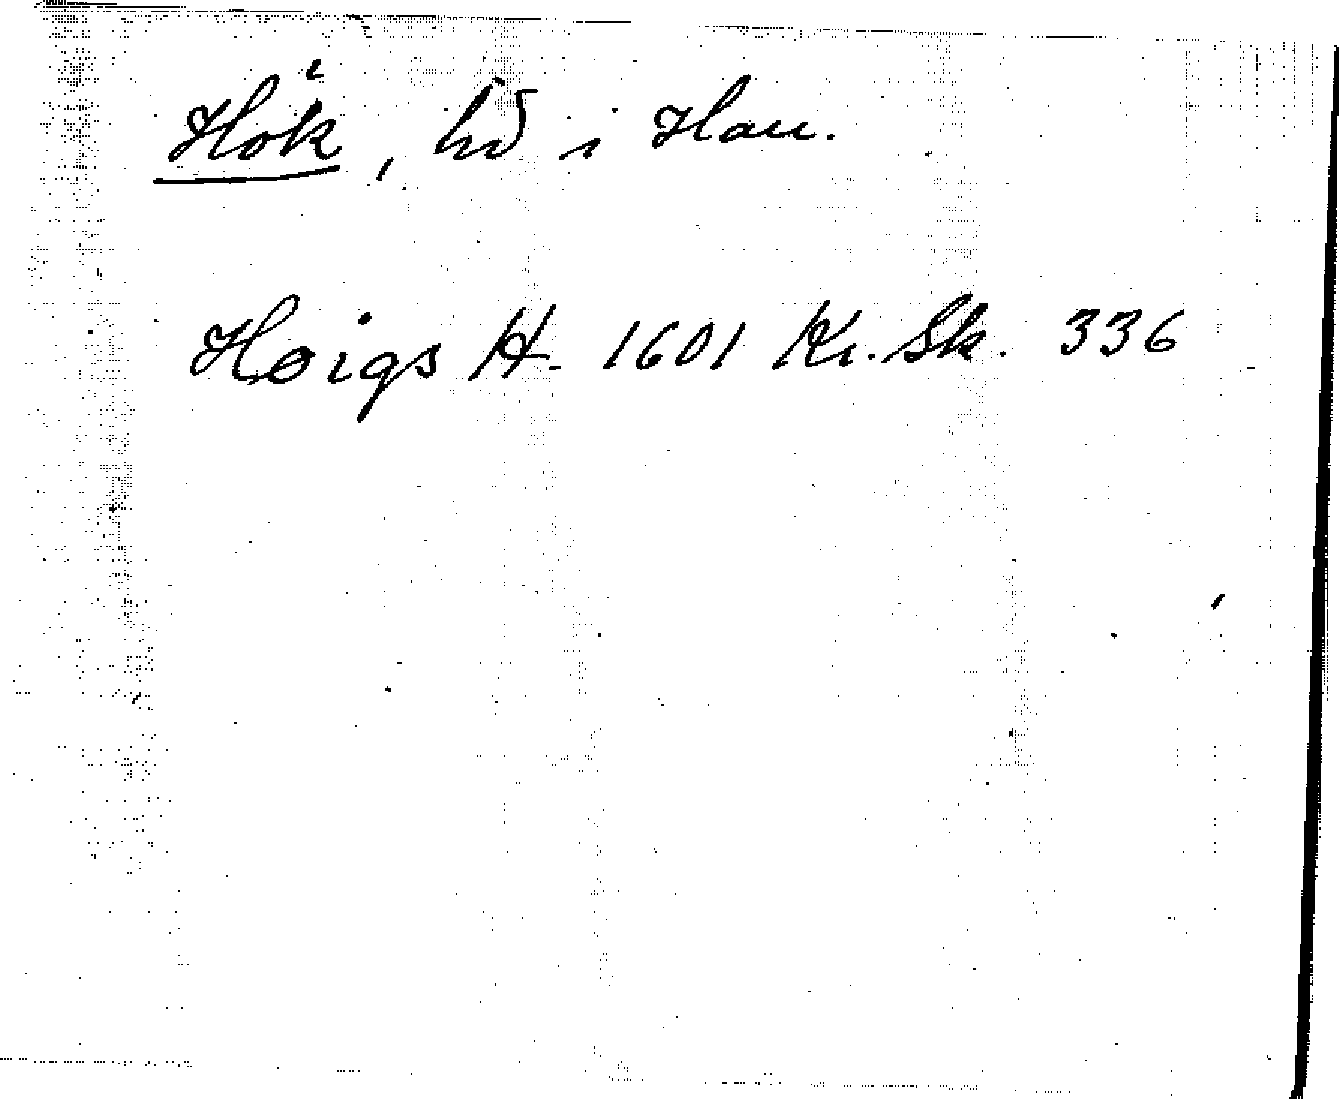 Hök, hd i Hau.
Høigs H. 1601 Kr. Sk. 336